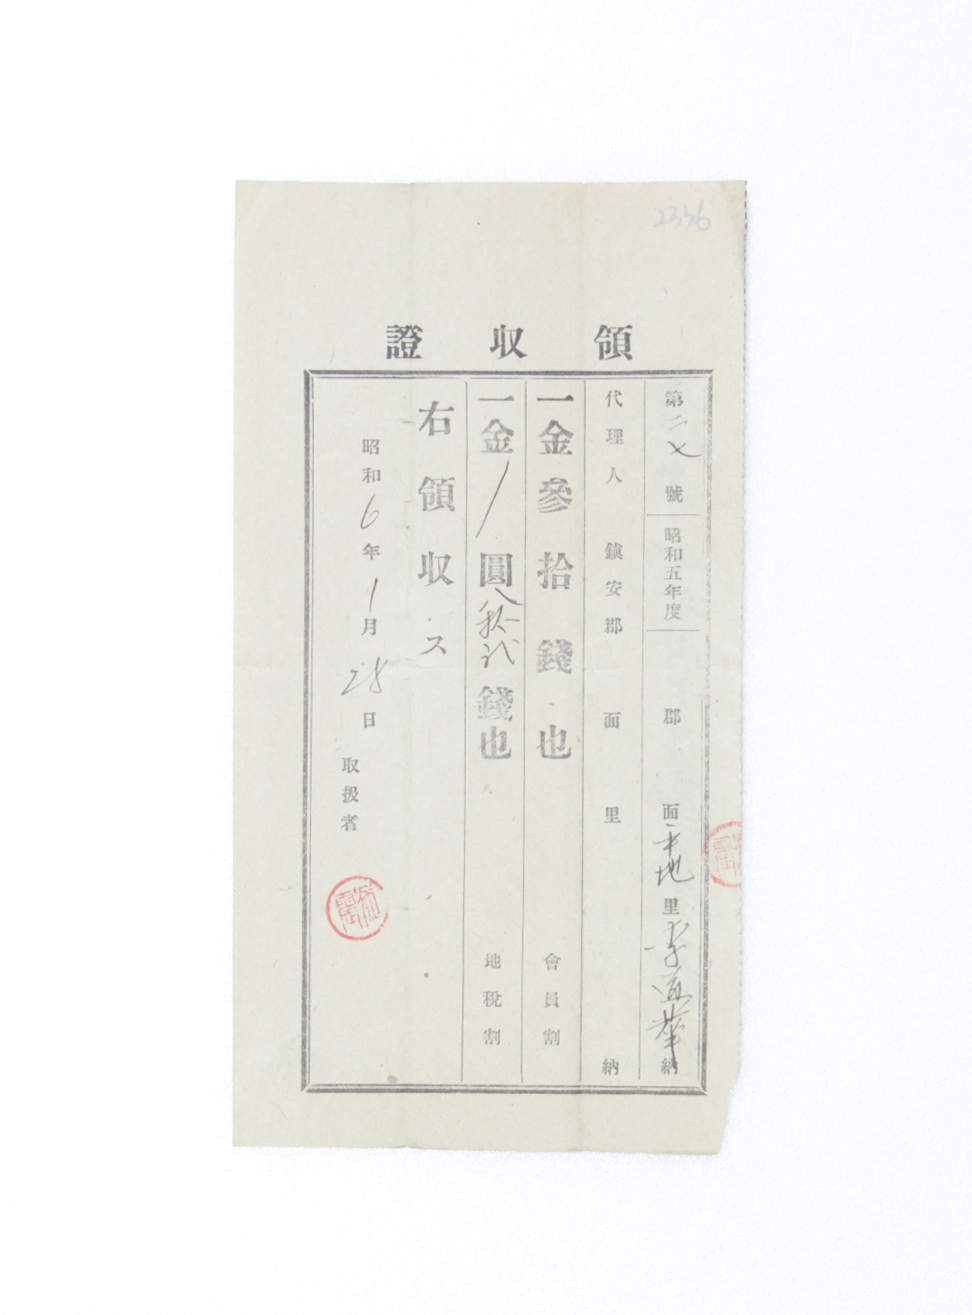 2336
領收證
第二七號 昭和五年度 郡 面 平地里 李道華 納
代理人 鎭安郡 面 里 納
一金參拾錢也 會員割
一金 圓 錢也 地稅割
右領収ス
昭和6年1月28日
取扱者